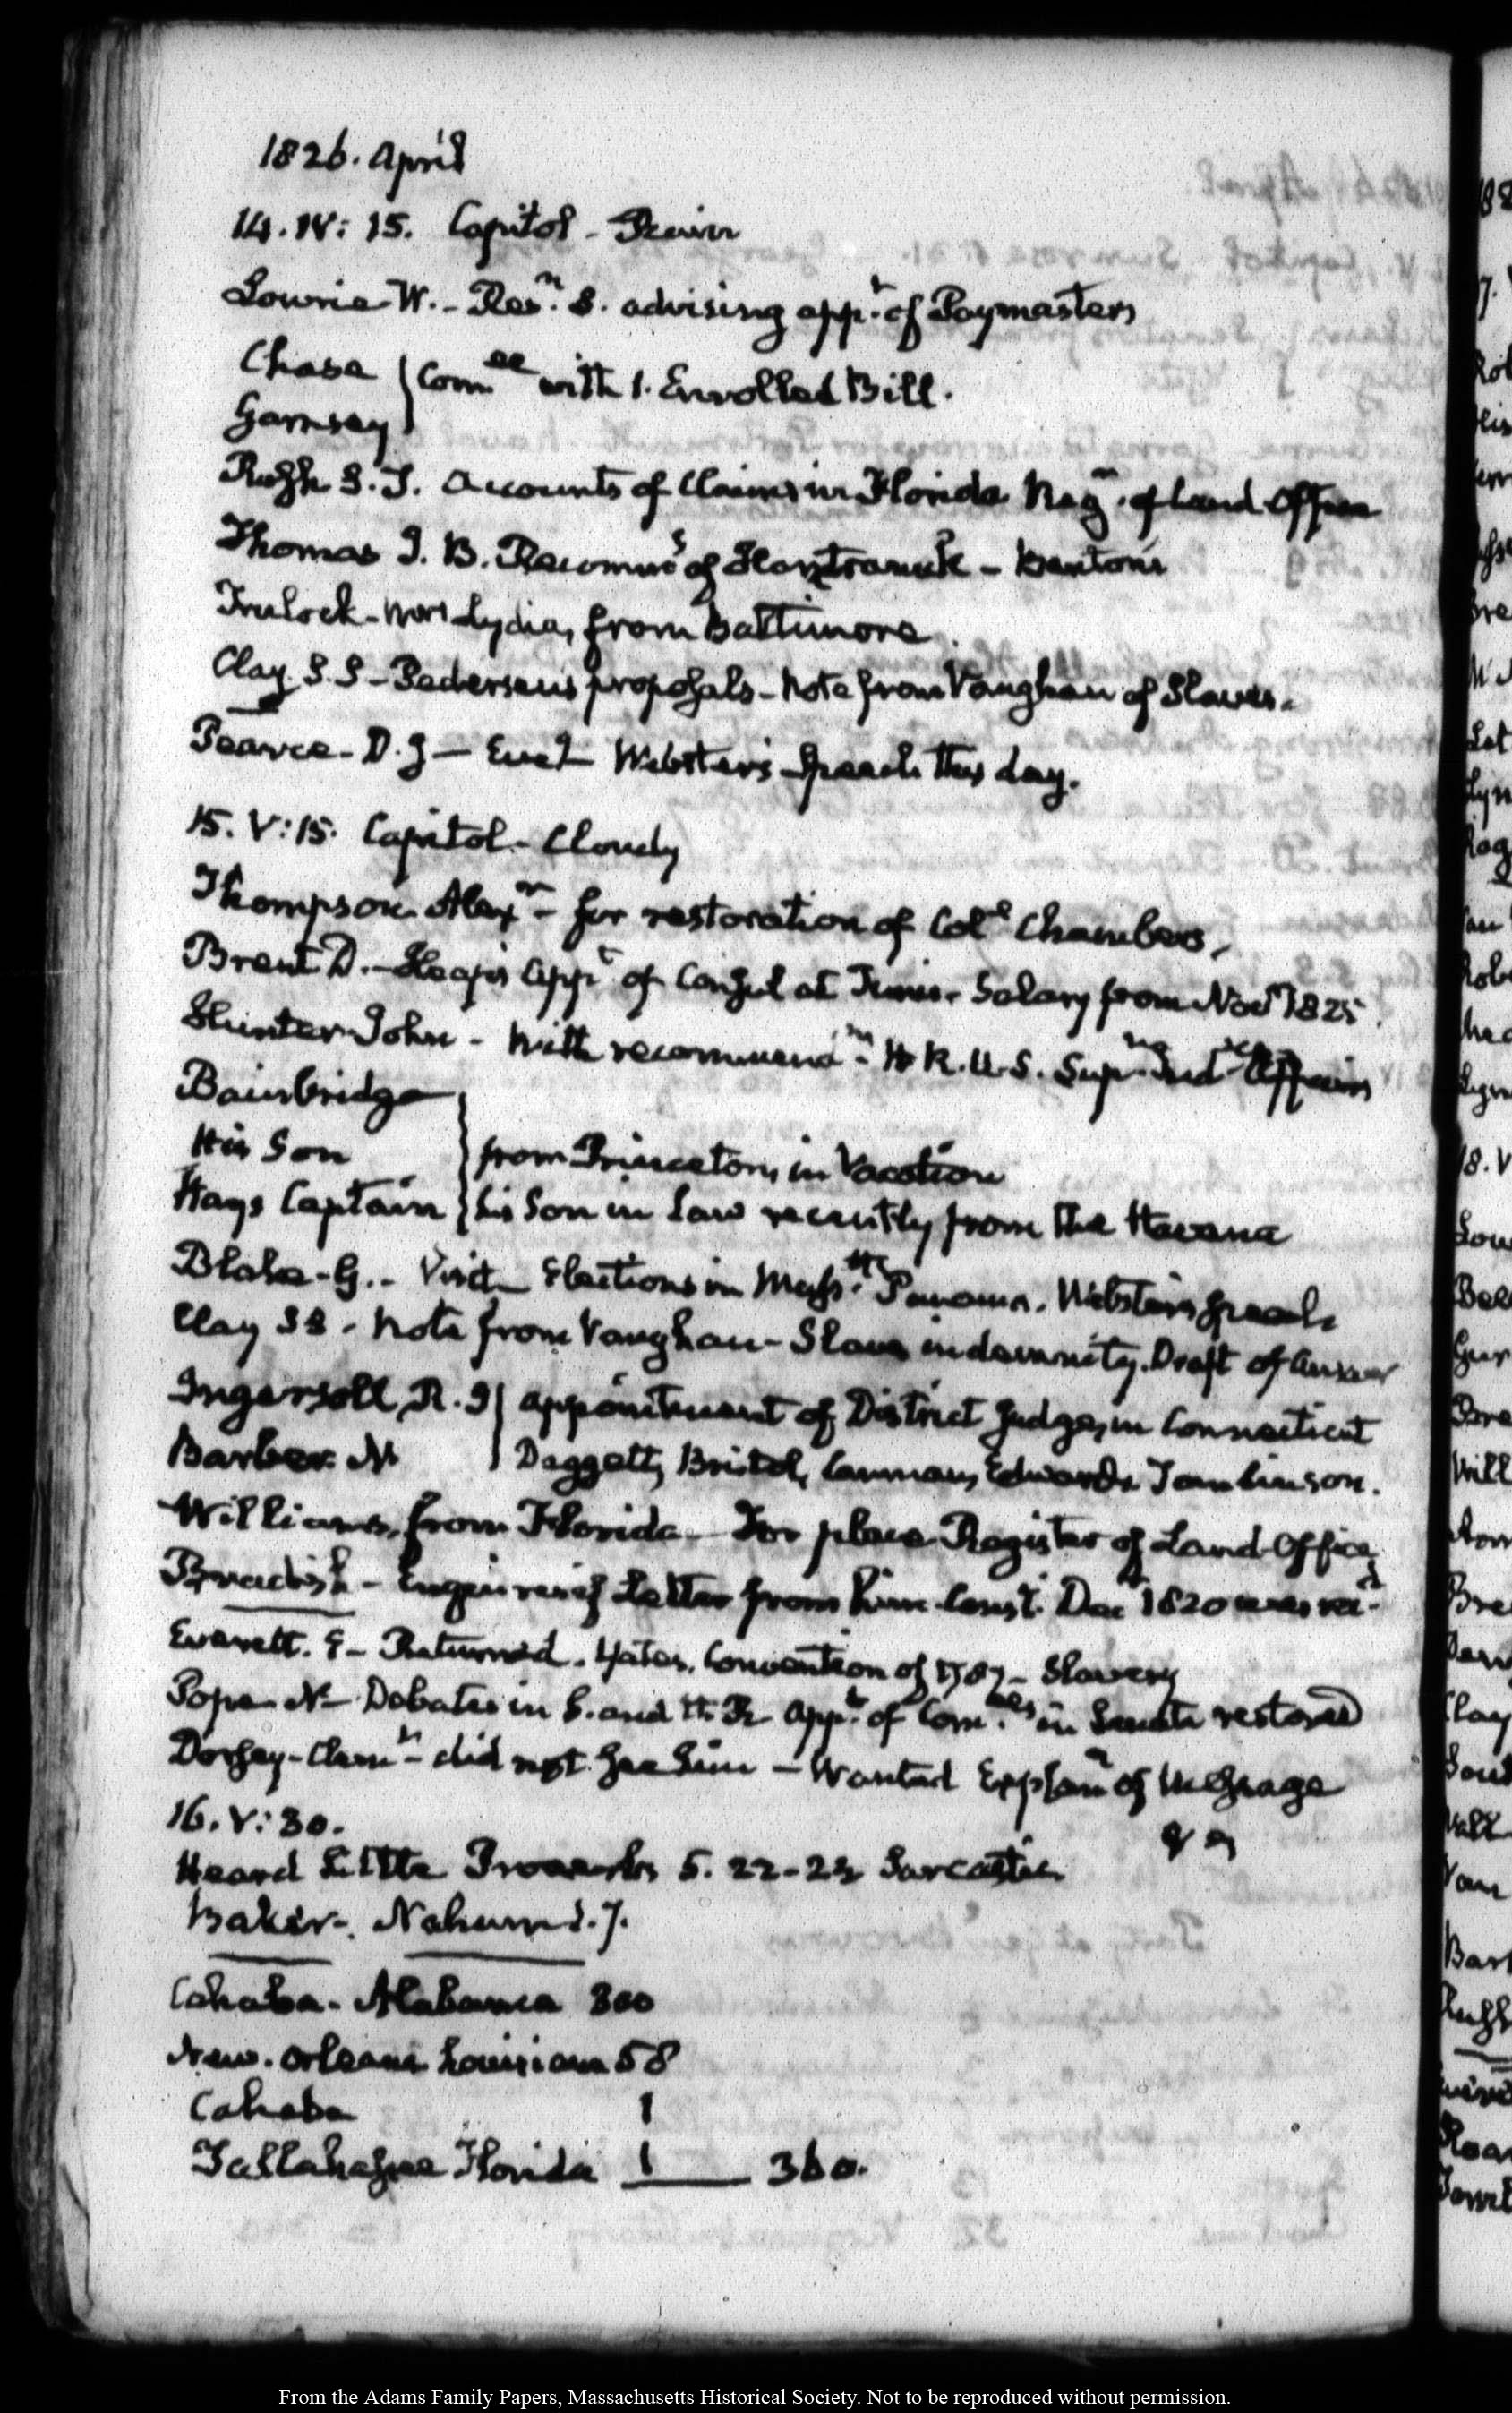 1826. April
14. IV: 15. Capitol - Rain
Lowrie W. - Resn. S. advising appt. of Paymasters
Chase } Comee with 1. Enrolled Bill.
Garnsey
Rush S.T. Accounts of Claims in Florida. of Land Office
Thomas J. B. Recomns of Hamtramck - Benton's
Trulock - Lydia, from Baltimore
Clay. S.S - Pedersen's proposals - Note from Vaughan of Slaves.
Pearce - D. J - Evet Webster's Speech this day.
15. V: 15. Capitol - Cloudy
Thompson Alexr - for restoration of Coll Chambers.
Brent D. - Heap's appt of Consul at Tunis. Salary from Novr 1825.
Hunter John - With recommendn H R. U.S. Supg Ind Affairs
Bainbridge
His Son } from Princeton, in Vacation
Hays Captain } his Son in Law recently from the Havana
Blake - G. - Visit - Elections in Massts. Panama. Websters Speech
Clay SS. Note from Vaughan - Slave indemnity. Draft of Answer
Ingersoll R. I } appointment of District Judge, in Connecticut
Barber N } Daggett, Bristol, Lanman, Edwards Tomlinson.
Williams, from Florida - For place Register of Land Office
Bradish - Enquires if Letter from him Const. Decr 1820 was recd
Everett. E - Returned. Yates. Convention of 1787 - Slavery
Pope N - Debates in S. and H. R appt. of Comees in Senate restored
Dorsey - Clemt - did not see him - Wanted Explann of Message
16. V: 30.
Heard Little Proverbs 5. 22-23 Sarcastic
Baker. Nahum 1. 7.
Cahaba - Alabama 300
New. Orleans Louisiana 58
Cahaba 1
Tallahassee Florida 1 360.
From the Adams Family Papers, Massachusetts Historical Society. Not to be reproduced without permission.